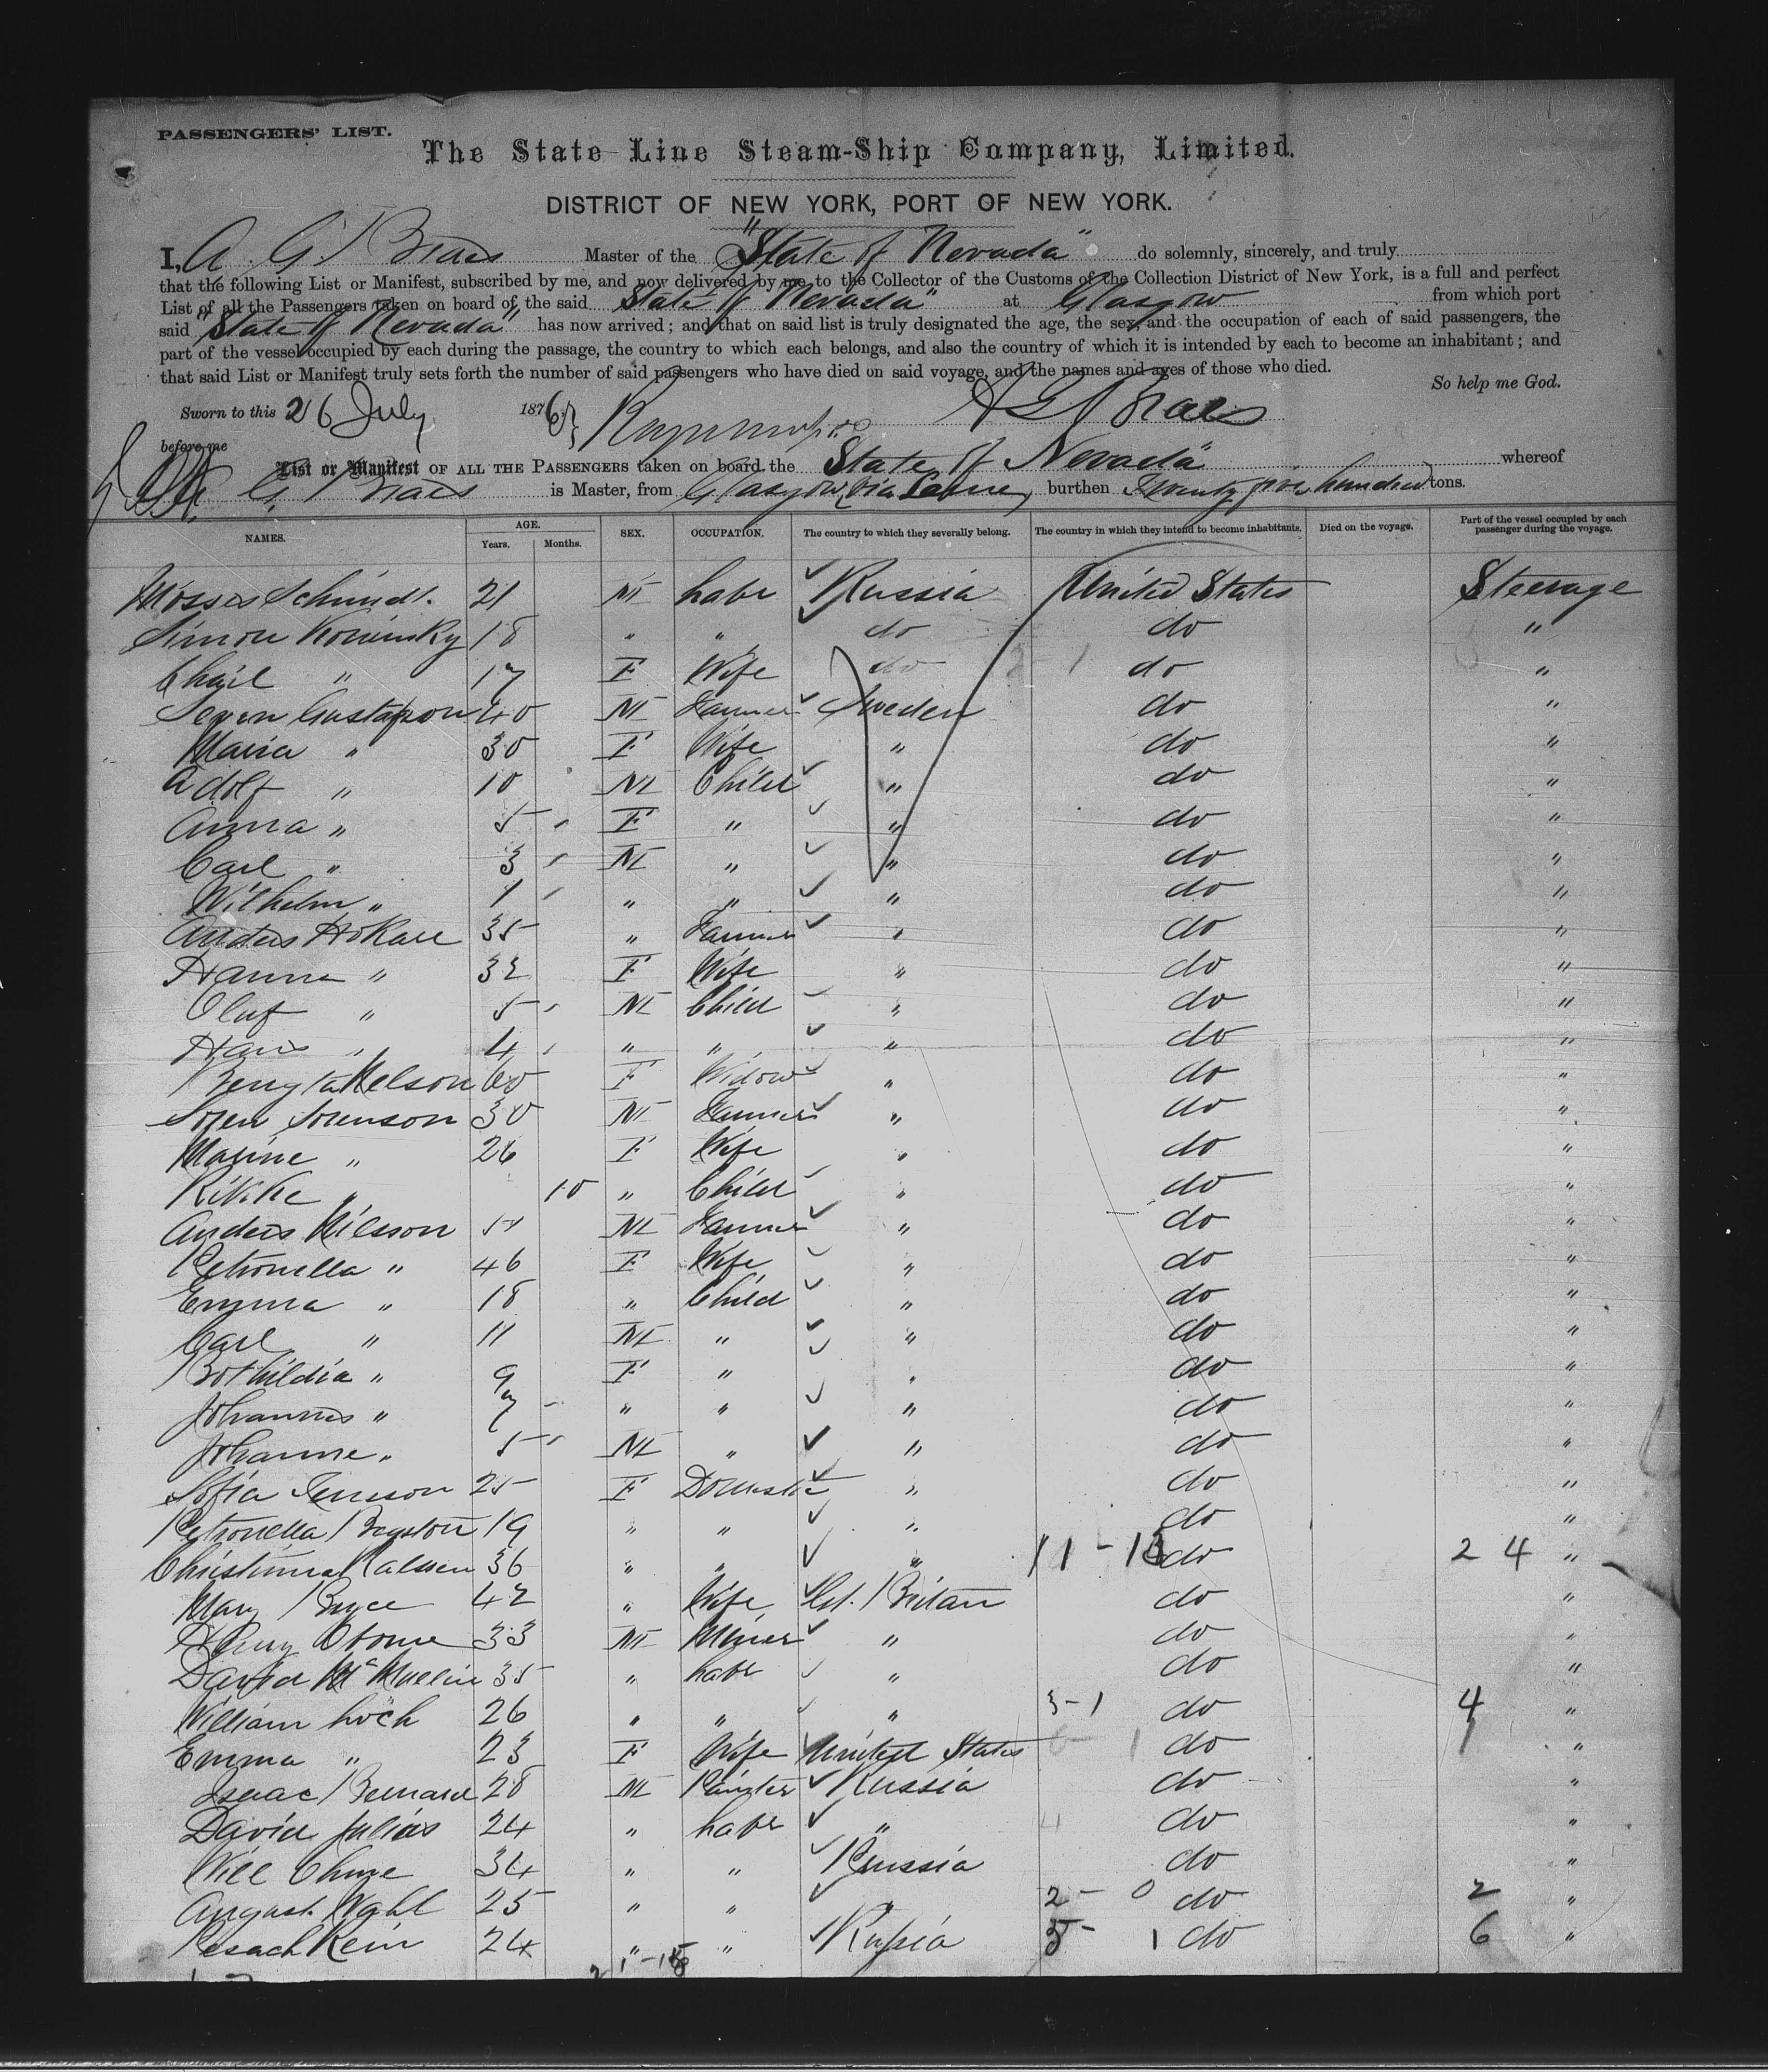 PASSENGERS' LIST.
The State Line Steam-Ship Company, Limited.
DISTRICT OF NEW YORK, PORT OF NEW YORK.
I, A G Master of the "State of Nevada" do solemnly, sincerely, and truly
that the following List or Manifest, subscribed by me, and now delivered by me to the Collector of the Customs of the Collection District of New York, is a full and perfect
List of all the Passengers taken on board of the said State of Nevada" at Glasgow from which port
said "State of Nevada" has now arrived; and that on said list is truly designated the age, the sex, and the occupation of each of said passengers, the
part of the vessel occupied by each during the passage, the country to which each belongs, and also the country of which it is intended by each to become an inhabitant; and
that said List or Manifest truly sets forth the number of said passengers who have died on said voyage, and the names and ages of those who died.
So help me God.
Sworn to this 26 July 1876
before me
List or Manifest OF ALL THE PASSENGERS taken on board the State of Nevada" whereof
G is Master, from Glasgow, via Larne, burthen Twenty five hundred tons.
NAMES. AGE. Years. Months. SEX. OCCUPATION. The country to which they severally belong. The country in which they intend to become inhabitants. Died on the voyage. Part of the vessel occupied by each passenger during the voyage.
Schmidt. 21 M Labr Russia United States Steerage
Simon Koninsky 18 " " do do "
" 17 F Wife do do "
Gustafson 40 M Farmer Sweden do "
Maria " 30 F Wife " do "
Adolf " 10 M Child " do "
Anna " 5 F " " do "
Carl " 3 M " " do "
Wilhelm " 1 " " " do "
Anders 35 " Farmer " do "
Hanna " 32 F Wife " do "
Oluf " 5 M Child " do "
Hans " 4 " " " do "
Nelson 60 F Widow " do "
Soren Sorenson 30 M Farmer " do "
Marine " 26 F Wife " do "
Rikke " 10 " Child " do "
Anders Nilsson M Farmer " do "
Petronella " 46 F Wife " do "
Emma " 18 " Child " do "
Carl " 11 M " " do "
Bothildia " 9 F " " do "
Johannes " 7 " " " do "
Johanne " 5 M " " do "
Sofia 25 F Domestic " do "
Petronella 19 " " " do "
36 " " " 11-13 do 24 "
Mary Bryce 42 " Wife Gt. Britain do "
33 M Miner " do "
David 35 " Labr " do "
William 26 " " " 3-1 do 4 "
Emma " 23 F Wife United States do "
Isaac Bernard 28 M Painter Russia do "
David Julius 24 " Labr " do "
34 " " Prussia do "
August Wahl 25 " " " 2-0 do 2 "
24 " " Russia 5-1 do 6 "